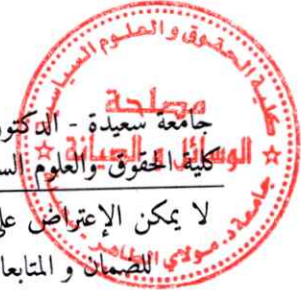 كلية الحقوق و العلوم السياسية
مصلحة
الوسائل و الصيانة
جامعة د. مولاي الطاهر
جامعة سعيدة - الدكتور
كلية الحقوق والعلوم الس
لا يمكن الإعتراض على
للضمان و المتابعا